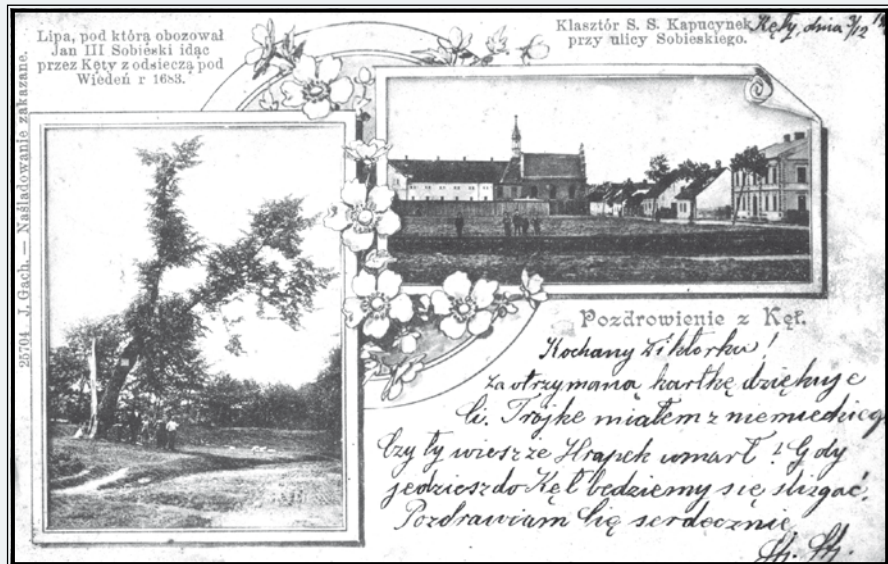 Lipa, pod którą obozował
Jan III Sobieski idąc
przez Kęty z odsieczą pod
Wiedeń r 1683.
Klasztór S. S. Kapucynek
przy ulicy Sobieskiego.
Kęty, dnia 3/12
25704 J. Gach. — Naśladowanie zakazane.
Pozdrowienie z Kęt.
Kochany Wiktorku!
Za otrzymaną kartkę dziękuję
Ci. Trójkę miałem z niemieckiego
Czy ty wiesz że Hrapek umarł! Gdy
jedziesz do Kęt będziemy się ślizgać.
Pozdrawiam Cię serdecznie
St. St.